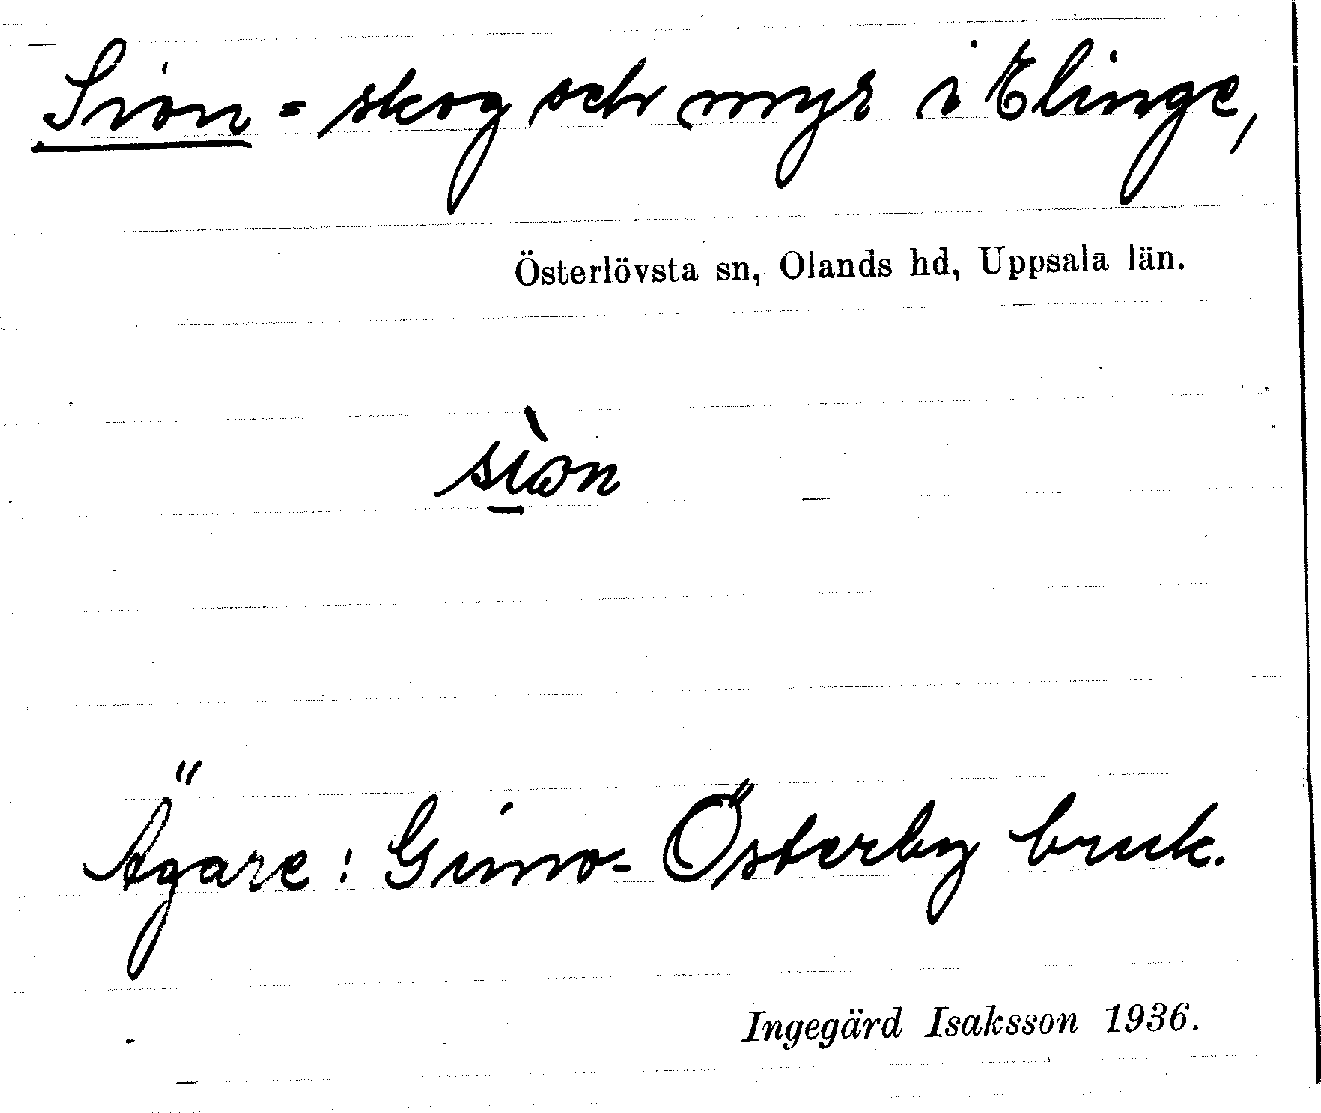 Sion - skog och myr i Elinge,
Österlövsta sn, Olands hd, Uppsala län.
sı̱̀ɷn
Ägare : Gimo- Österby bruk.
Ingegärd Isaksson 1936.